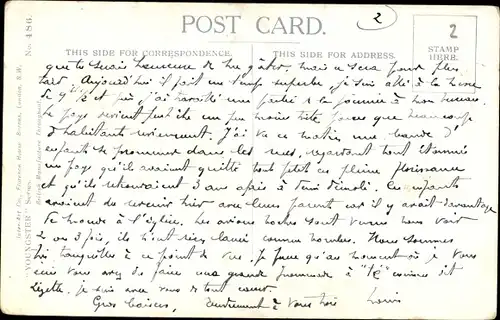 POST CARD.
2
2
STAMP
HERE.
THIS SIDE FOR CORRESPONDENCE.
THIS SIDE FOR ADDRESS.
No. 486.
Inter-Art Co., Florence House, Barnes, London, S.W.
British Manufacture throughout.
"YOUNGSTER" Series.
que je serais heureuse de les gâter, mais ce sera pour plus
tard. Aujourd'hui il fait un temps superbe, je suis allé à la
et puis, j'ai travaillé une partie de la journée à mon bureau.
Le pays devient peut être un peu moins triste parce que beaucoup
d'habitants reviennent. J'ai vu ce matin une bande d'
enfants se promener dans les rues, regardant tout étonnés
un pays qu'ils avaient quitté tout petit en pleine floraison
et qu'ils retrouvaient 3 ans après à demi démoli. Ces enfants
avaient dû revenir hier avec leurs parents car il y avait davantage
de monde à l'église. Les avions boches sont venus nous voir
2 ou 3 fois, ils n'ont rien lancé comme bombes. Nous sommes
tranquilles à ce point de vue. Je pense qu'au moment où je vous
écris vous avez dû faire une grande promenade à comme dit
je suis avec vous de tout coeur.
Gros baisers, tendrement à vous trois Louis